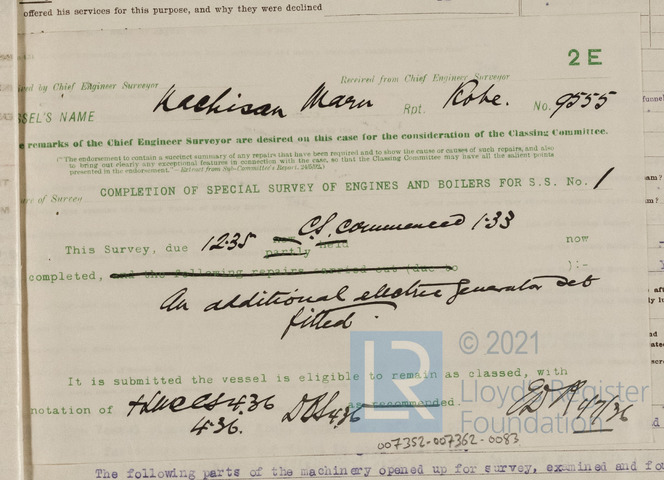 offered his services for this purpose, and why they were declined
2 E
by Chief Engineer Surveyor
Received from Chief Engineer Surveyor
SSEL'S NAME Kachisan Maru Rpt. Kobe. No. 9555
remarks of the Chief Engineer Surveyor are desired on this case for the consideration of the Classing Committee.
("The endorsement to contain a succinct summary of any repairs that have been required and to show the cause or causes of such repairs, and also
to bring out clearly any exceptional features in connection with the case, so that the Classing Committee may have all the salient points
presented in the endorsement."—Extract from Sub-Committee's Report,
of Survey COMPLETION OF SPECIAL SURVEY OF ENGINES AND BOILERS FOR S.S. No. 1
This Survey, due 12.35 partly held C.S. commenced 1.33 now
completed, and the following repairs carried out (due to ):-
An additional electric generator set
fitted.
It is submitted the vessel is eligible to remain as classed, with
notation of + LMC CS 4.36 DBS 4.36 as recommended.
4.36.
© 2021
LR
Lloyd's Register
Foundation
007352-007362-0083
The following parts of the machinery opened up for survey, examined and fou